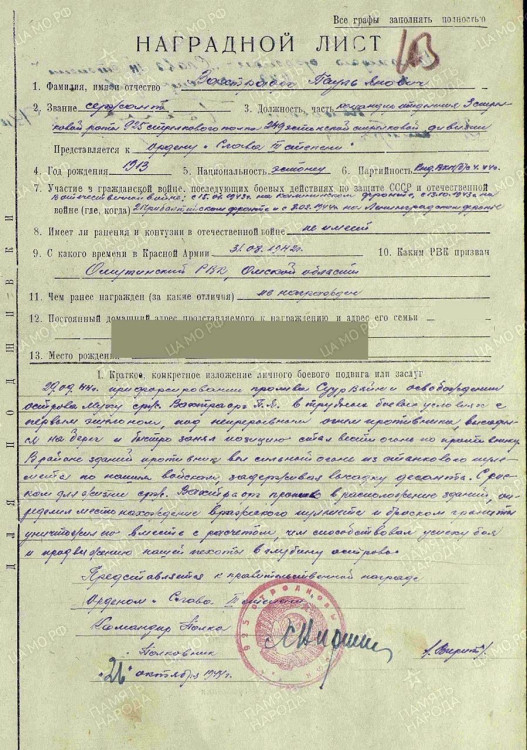 Все графы заполнять полностью
НАГРАДНОЙ ЛИСТ
1. Фамилия, имя и отчество Пауль Янович
2. Звание сержант 3. Должность, часть командир отделения 3 стрел-
ковой роты 925 стрелкового полка 249 Эстонской стрелковой дивизии
Представляется к Ордену „Слава III степени"
4. Год рождения 1913 5. Национальность эстонец 6. Партийность
7. Участие в гражданской войне, последующих боевых действиях по защите СССР и отечественной
войне (где, когда) 2 Прибалтийском фронте и с 2.02.1944 на Ленинградском фронте
8. Имеет ли ранения и контузии в отечественной войне не имеет
9. С какого времени в Красной Армии 31.08.1942г. 10. Каким РВК призван
Омутинский РВК, Омской области
11. Чем ранее награжден (за какие отличия) не награжден
12. Постоянный домашний адрес представляемого к награждению и адрес его семьи
13. Место рождения
1. Краткое, конкретное изложение личного боевого подвига или заслуг
29.09.44г. при форсировании пролива и освобождении
острова Муху серж. П.Я. в трудных боевых условиях с
первым эшелоном, под непрерывным огнем противника, высадил-
ся на берег и быстро занял позицию стал вести огонь по противнику.
В районе зданий противник вел сильный огонь из станкового пуле-
мета по нашим войскам, задерживая высадку десанта. С рис-
ком для жизни серж. в расположение зданий, оп-
ределил место нахождение вражеского пулемета и броском гранаты
уничтожил его вместе с расчетом, чем способствовал успеху боя
и продвижению нашей пехоты в глубину острова.
Представляется к правительственной награде
Орденом „Слава III степени
Командир полка
Полковник
26 октября 1944г.
ДЛЯ ПОДШИВКИ
ЦА МО РФ
ПАМЯТЬ НАРОДА